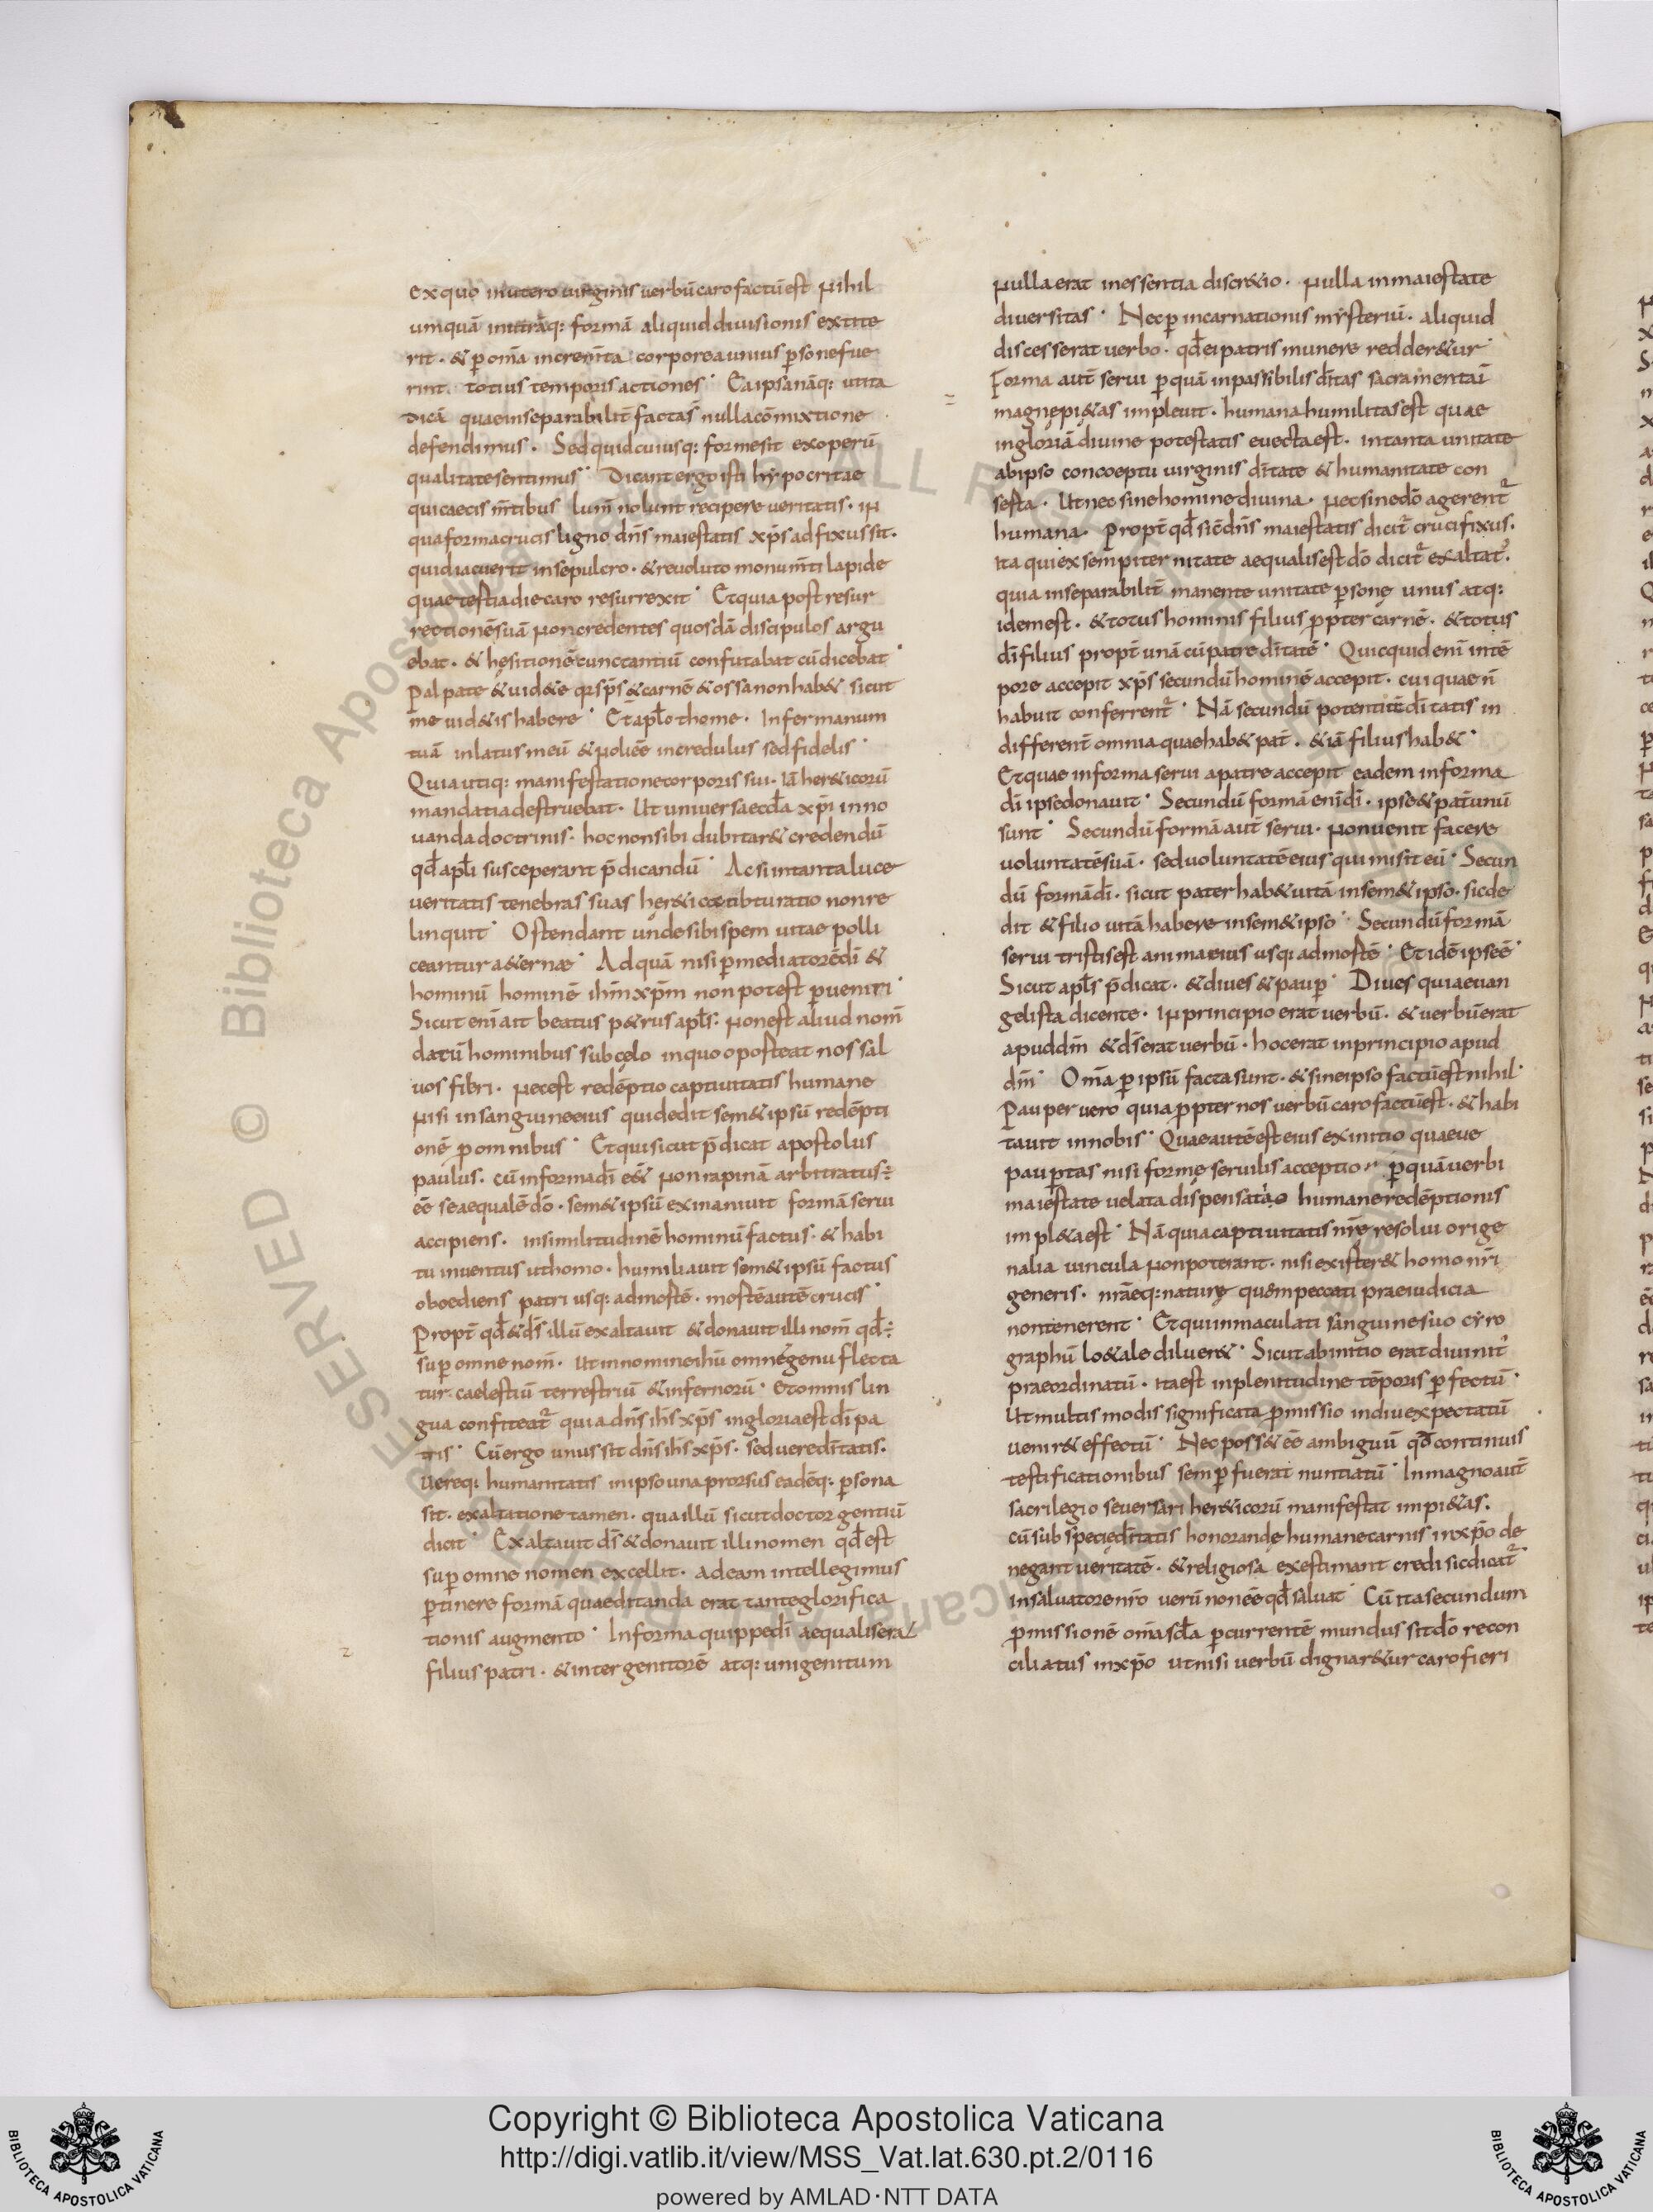 ex quo in utero uirginis uerbū caro factū est Nihil
umquā in utrāq: formā aliquid diuisionis extite
rit · & p̱ om̄a increm̄ta corporea unius p̱sone fue
rint totius temporis actiones · Ea ipsa nāq: ut ita
dicā quae inseparabilit̄ facta s̄ nulla cōmixtione
defendimus · Sed quid cuiusq: forme sit ex operū
qualitate sentimus · Dicant ergo isti hypocritae
qui caecis m̄tibus lum̄ nolunt recipere ueritatis · IN
qua forma crucis ligno dn̄s maiestatis xp̄s adfixus sit ·
quid iacuerit in sepulcro · & reuoluto monum̄ti lapide
quae tertia die caro resurrexit · Et quia post resur
rectionē suā Non credentes quosdā discipulos argu
ebat · & hęsitionē cunctantiū confutabat cū dicebat ·
Palpate & uid&e qr̄ sp̄s & carnē & ossa non hab& sicut
m̄e uid&is habere · Et apl̄o thome · Infer manum
tuā in latus meū & Noli ēē incredulus sed fidelis ·
Qui autiq: manifestatione corporis sui · iā her&icorū
mandatia destruebat · Ut uniuersa eccl̄a xp̄i inno
uanda doctrinis · hoc non sibi dubitar& credendū
qd̄ apl̄i susceperant p̄dicandū · Ac si in tanta luce
ueritatis tenebras suas
linquit · Ostendant unde sibi spem uitae polli
ceantur a&ernae · Ad quā nisi p̱ mediatorē dī &
hominū hominē ihm̄ xp̄m non potest p̱ueniri ·
Sicut eni ait beatus p&rus apl̄s · Non est aliud nom̄
datū hominibus sub cęlo in quo oporteat nos sal
uos fi&ri · Nec est redēptio captiuitatis humane
Nisi in sanguine eius qui dedit sem&ipsū redēpti
onē p̱ omnibus · Et qui sicut p̄dicat apostolus
paulus · cū in forma dī e&́ Non rapinā arbitratus:
ēē se aequalē dō · sem&ipsū exinaniuit formā serui
accipiens · in similitudinē hominū factus · & habi
tu inuentus ut homo · humiliauit sem&ipsū factus
oboediens patri usq: ad mortē · mortē autē crucis ·
Propt̄ qd̄ & ds̄ illū exaltauit & donauit illi nom̄ qd̄:
sup̱ omne nom̄ · ut in nomine ihū omne genu flecta
tur · caelestiū terrestriū & infernorū · Et omnis lin
gua confiteat̄ quia dn̄s ihs̄ xp̄s in gloria est dī pa
tris · Cū ergo unus sit dn̄s ihs̄ xp̄s · sed uere dītatis ·
uereq: humanitatis in ipso una prorsus eadēq: p̱sona
sit · exaltatione tamen · qua illū sicut doctor gentiū
dicit · Exaltauit ds̄ & donauit illi nomen qd̄ est
sup̱ omne nomen excellit · ad eam intellegimus
p̱tinere formā quae ditanda erat tante glorifica
tionis augmento · In forma quippe dī aequalis erat
filius patri · & inter genitorē atq: unigenitum
Nulla erat in essentia discr&io · Nulla in maiestate
diuersitas · Nec p̱ incarnationis mysteriū · aliquid
discesserat uerbo · qd̄ ei patris munere redder&ur ·
Forma aut̄ serui p̱ quā inpassibilis dītas
magnę pi&as impleuit · humana humilitas est quae
in gloriā diuine potestatis euecta est · in tanta unitate
ab ipso concoeptu uirginis dītate & humanitate con
serta · Ut nec sine homine diuina · Nec sine dō agerent̄
humana · Propt̄ qd̄ sic dn̄s maiestatis dicit̄ crucifixus ·
ita qui ex sempiternitate aequalis est dō dicit̄ exaltat'·
quia inseparabilit̄ manente unitate p̱sonę unus atq:
idem est · & totus hominis filius p̱pter carnē · & totus
dī filius propt̄ unā cū patre dītatē · Quicquid eni in tē
pore accepit xp̄s secundū hominē accepit · cui quae n̄
habuit conferrent̄ · Nā secundū dītatis in
different̄ omnia quae hab& pat̄ · & iā filius hab& ·
Et quae in forma serui a patre accepit eadem in forma
dī ipse donauit · Secundū formā eni dī · ipse & pat̄ unū
sunt · Secundū formā aut̄ serui · Non uenit facere
uoluntatē suā · sed uoluntatē eius qui misit eū · Secun
dū formā dī · sicut pater hab& uitā in sem&ipso · sic de
dit & filio uitā habere in sem&ipso · Secundū formā
serui tristis est anima eius usq: ad mortē · Et idē ipse ē ·
Sicut apl̄s p̄dicat · & diues & paup̱ · Diues quia euan
gelista dicente · IN principio erat uerbū · & uerbū erat
apud dm̄ & ds̄ erat uerbū · hoc erat in principio apud
dm̄ · Om̄a p̱ ipsū facta sunt · & sine ipso factū est nihil ·
Pauper uero quia p̱pter nos uerbū caro factū est · & habi
tauit in nobis · Quae autē est eius exinitio quaeue
paup̱tas nisi forme seruilis acceptio p̱ quā uerbi
maiestate uelata dispensatio humane redēptionis
impl&a est · Nā quia captiuitatis nr̄ę resolui orige
nalia uincula Non poterant · nisi exister& homo nr̄i
generis · nr̄aeq: naturę quem peccati praeiudicia
non tenerent · Et qui inmaculati sanguine suo cyro
graphū lo&ale diluer& · Sicut ab initio erat diuinit'
praeordinatū · ita est in plenitudine tēporis p̱fectū ·
Ut multis modis significata p̱missio in diu expectatū
uenir& effectū · Nec poss& ēē ambiguū qd̄ continuis
testificationibus semp̱ fuerat nuntiatū · In magno aut̄
sacrilegio se uersari her&icorū manifestat impi&as ·
cū sub specie dītatis honorandę humane carnis in xp̄o de
negant ueritatē · & religiosa exestimant credi si dicat̄
in saluatore nr̄o uerū non ēē qd̄ saluat · Cū ita secundum
p̱missionē om̄a scl̄a p̱currentē mundus sit dō recon
ciliatus in xp̄o ut nisi uerbū dignar&ur caro fieri
Copyright © Biblioteca Apostolica Vaticana
http://digi.vatlib.it/view/MSS_Vat.lat.630.pt.2/0116
powered by AMLAD·NTT DATA
BIBLIOTECA APOSTOLICA VATICANA
BIBLIOTECA APOSTOLICA VATICANA